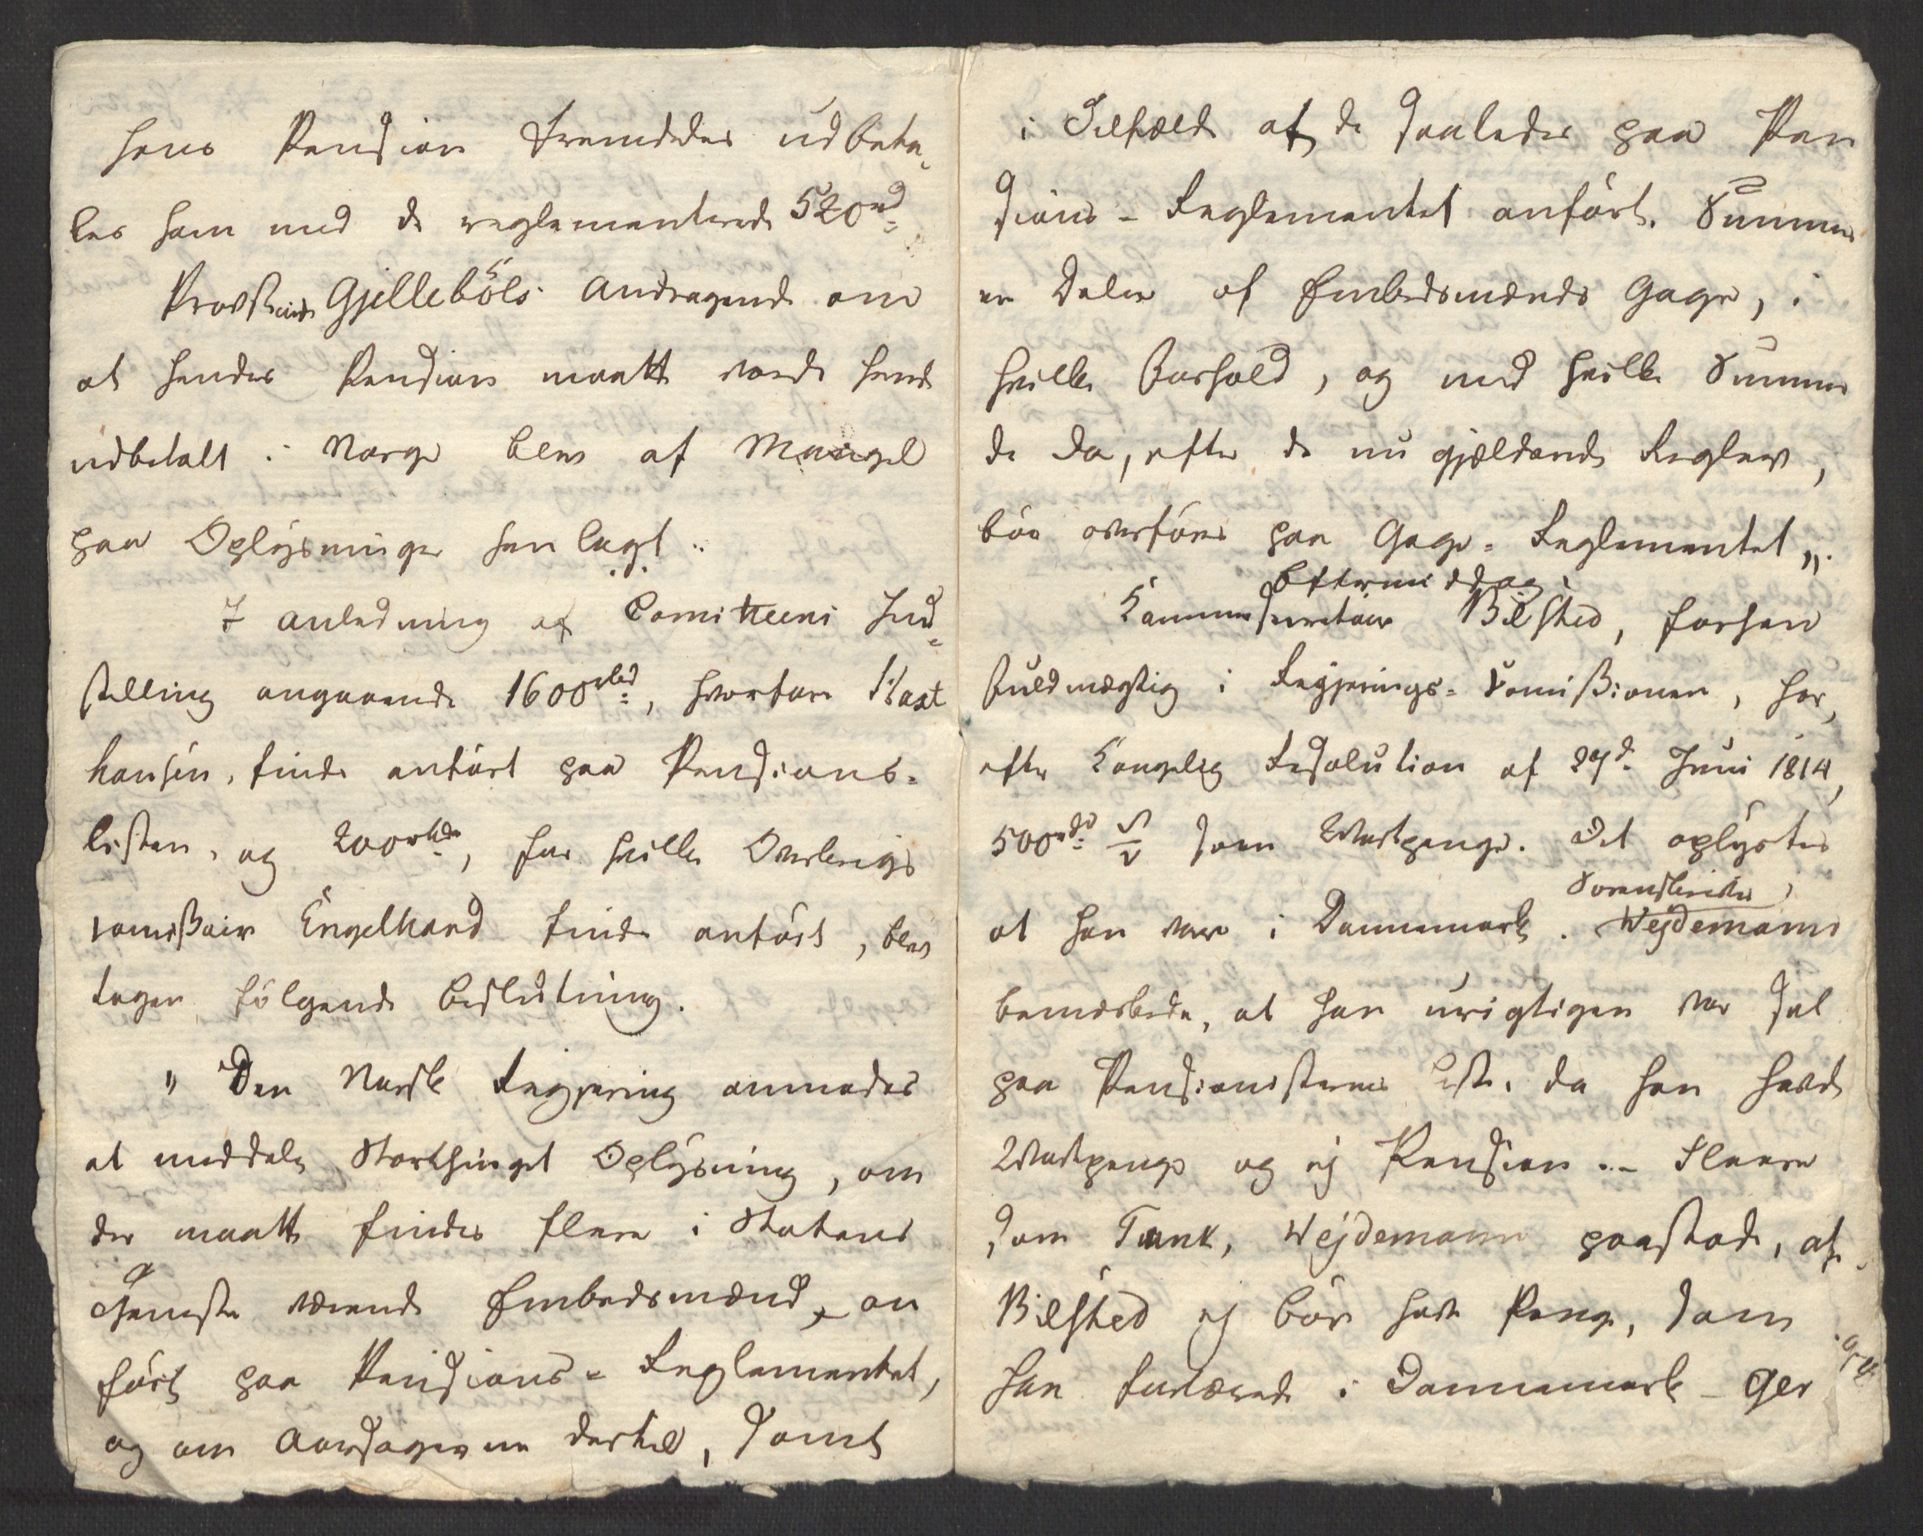 hans Pension fremdeles udbeta-
les ham med de reglementerede 520 rd
Provstinde Gjellebøls Andragende om
at hendes Pension maatte vorde hende
udbetalt i Norge blev af Mangel
paa Oplysninger henlagt.
I Anledning af Comitteens Ind=
stilling angaaende 1600 rbd, hvorfore Kaat
hansen, findes anført paa Pensions=
listen, og 200 rbdr, for hvilke Overkrigs
comissair Engelhard findes anført, blev
tagen følgende Beslutning.
" Den Norske Regjering anmodes
at meddele Storthinget Oplysning, om
der maatte findes flere i Statens
Tjeneste værende Embedsmænd, an
ført paa Pensions= Reglementet,
og om Aarsagerne dertil, samt
i Tilfælde af de saaledes paa Pen
sions- Reglementet anført. Summer
er Dele af Embedsmænds Gage, i
hvilke Forhold, og med hvilke Summer
de da, efter de nu gjældende Regler,
bør overføres paa Gage= Reglementet ".
Eftermiddag.
Kammersecretair Bilsted, forhen
Fuldmægtig i Regjerings= Comissionen, har,
efter Kongelig Resolution af 27d Juni 1814,
500 rdr som Vartpenge. Det oplystes
Sorenskriver
at han var i Dannemark. Wejdemann
bemærkede, at han urigtigen var sat
paa Pensionisternes Liste, da han havde
Vartpenge og ej Pension. - Fleere
som Tank, Wejdemann paastode, at
Bilsted ej bør have Penge, som
han fortærede i Dannemark - Ger